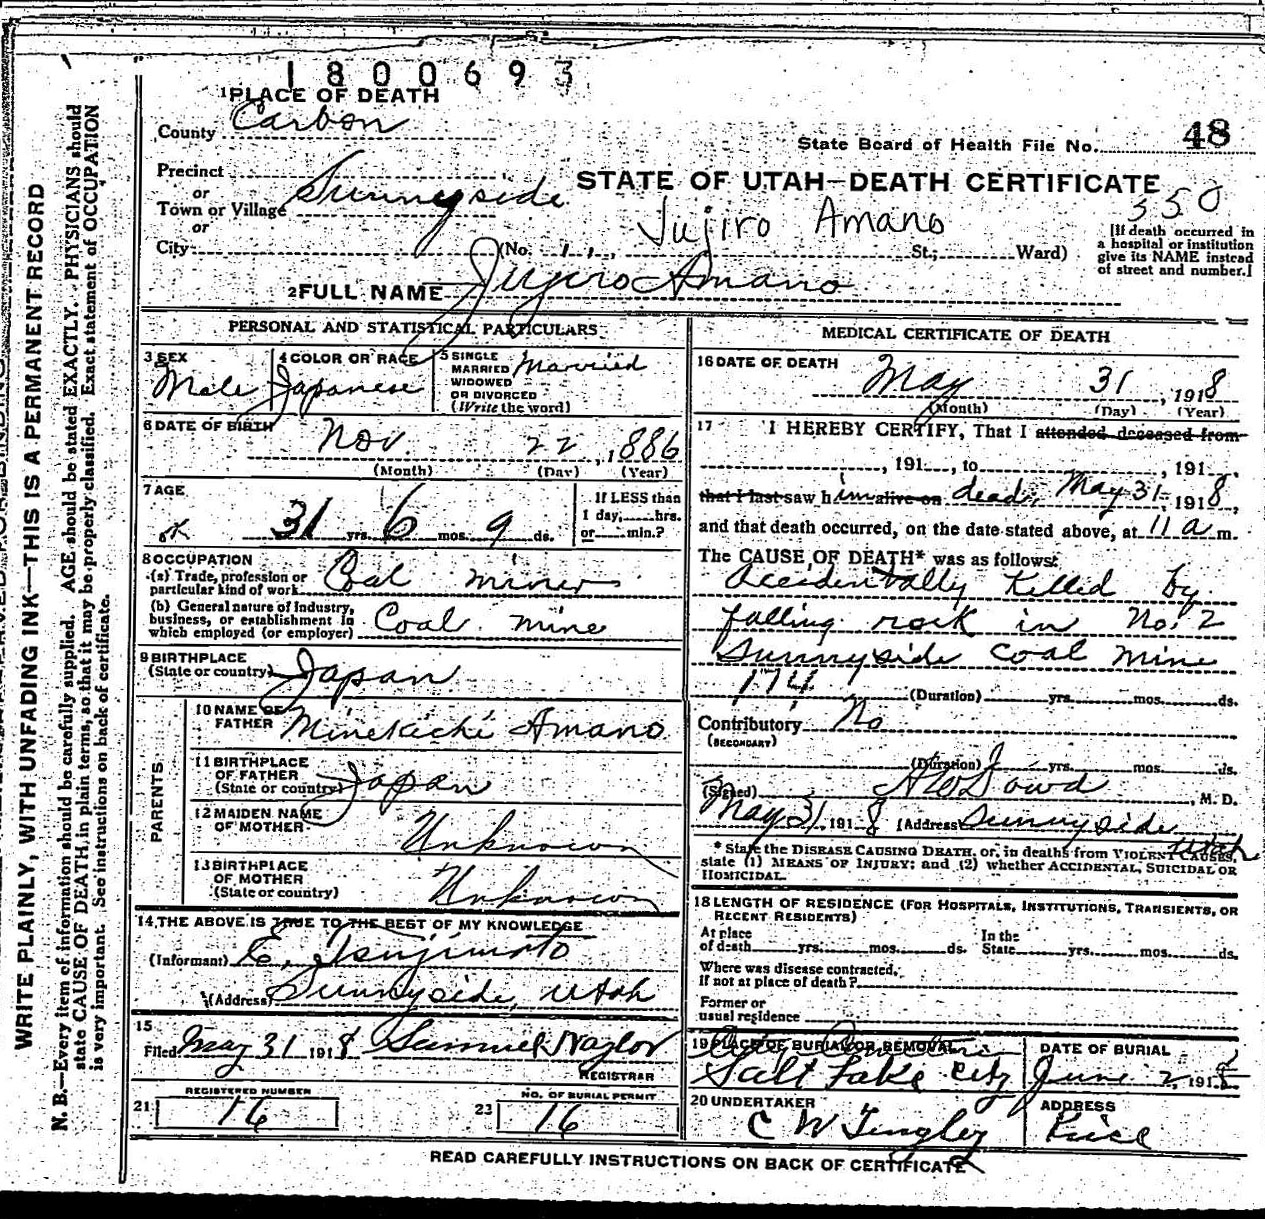 1800693
1 PLACE OF DEATH
County Carbon
State Board of Health File No. 48
Precinct
or
Town or Village Sunnyside
STATE OF UTAH—DEATH CERTIFICATE
350
or
City (No. , , St.; Ward)
Jujiro Amano
[If death occurred in
a hospital or institution
give its NAME instead
of street and number.]
2 FULL NAME Jujiro Amano
PERSONAL AND STATISTICAL PARTICULARS
3 SEX
Male
4 COLOR OR RACE
Japanese
5 SINGLE
MARRIED
WIDOWED
OR DIVORCED
(Write the word)
Married
6 DATE OF BIRTH
Nov. 22, 1886
(Month) (Day) (Year)
7 AGE
ok 31 yrs. 6 mos. 9 ds.
If LESS than
1 day, hrs.
or min.?
8 OCCUPATION
(a) Trade, profession or
particular kind of work Coal miner
(b) General nature of Industry,
business, or establishment in
which employed (or employer) Coal mine
9 BIRTHPLACE
(State or country) Japan
PARENTS
10 NAME OF
FATHER Minekichi Amano
11 BIRTHPLACE
OF FATHER
(State or country) Japan
12 MAIDEN NAME
OF MOTHER Unknown
13 BIRTHPLACE
OF MOTHER
(State or country) Unknown
14 THE ABOVE IS TRUE TO THE BEST OF MY KNOWLEDGE
(Informant) E. Tsujimoto
(Address) Sunnyside, Utah
15
Filed May 31 1918 Samuel Naylor
REGISTRAR
REGISTERED NUMBER
21 16
NO. OF BURIAL PERMIT
23 16
MEDICAL CERTIFICATE OF DEATH
16 DATE OF DEATH
May 31, 1918
(Month) (Day) (Year)
17 I HEREBY CERTIFY, That I attended deceased from
, 191 , to , 191 ,
that I last saw him alive on dead, May 31, 1918,
and that death occurred, on the date stated above, at 11 a m.
The CAUSE OF DEATH* was as follows:
Accidentally killed by
falling rock in No. 2
Sunnyside Coal Mine
174 (Duration) yrs. mos. ds.
Contributory No
(SECONDARY)
(Duration) yrs. mos. ds.
(Signed) Dowd, M. D.
May 31 1918 (Address) Sunnyside
Utah
* State the DISEASE CAUSING DEATH, or, in deaths from VIOLENT CAUSES,
state (1) MEANS OF INJURY; and (2) whether ACCIDENTAL, SUICIDAL OR
HOMICIDAL.
18 LENGTH OF RESIDENCE (FOR HOSPITALS, INSTITUTIONS, TRANSIENTS, OR
RECENT RESIDENTS)
At place
of death yrs. mos. ds.
In the
State yrs. mos. ds.
Where was disease contracted,
if not at place of death?
Former or
usual residence
19 PLACE OF BURIAL OR REMOVAL
Salt Lake City
DATE OF BURIAL
June 2, 1918
20 UNDERTAKER
C W Tingley
ADDRESS
Price
READ CAREFULLY INSTRUCTIONS ON BACK OF CERTIFICATE
WRITE PLAINLY, WITH UNFADING INK—THIS IS A PERMANENT RECORD
N. B.—Every item of information should be carefully supplied. AGE should be stated EXACTLY. PHYSICIANS should
state CAUSE OF DEATH in plain terms, so that it may be properly classified. Exact statement of OCCUPATION
is very important. See instructions on back of certificate.